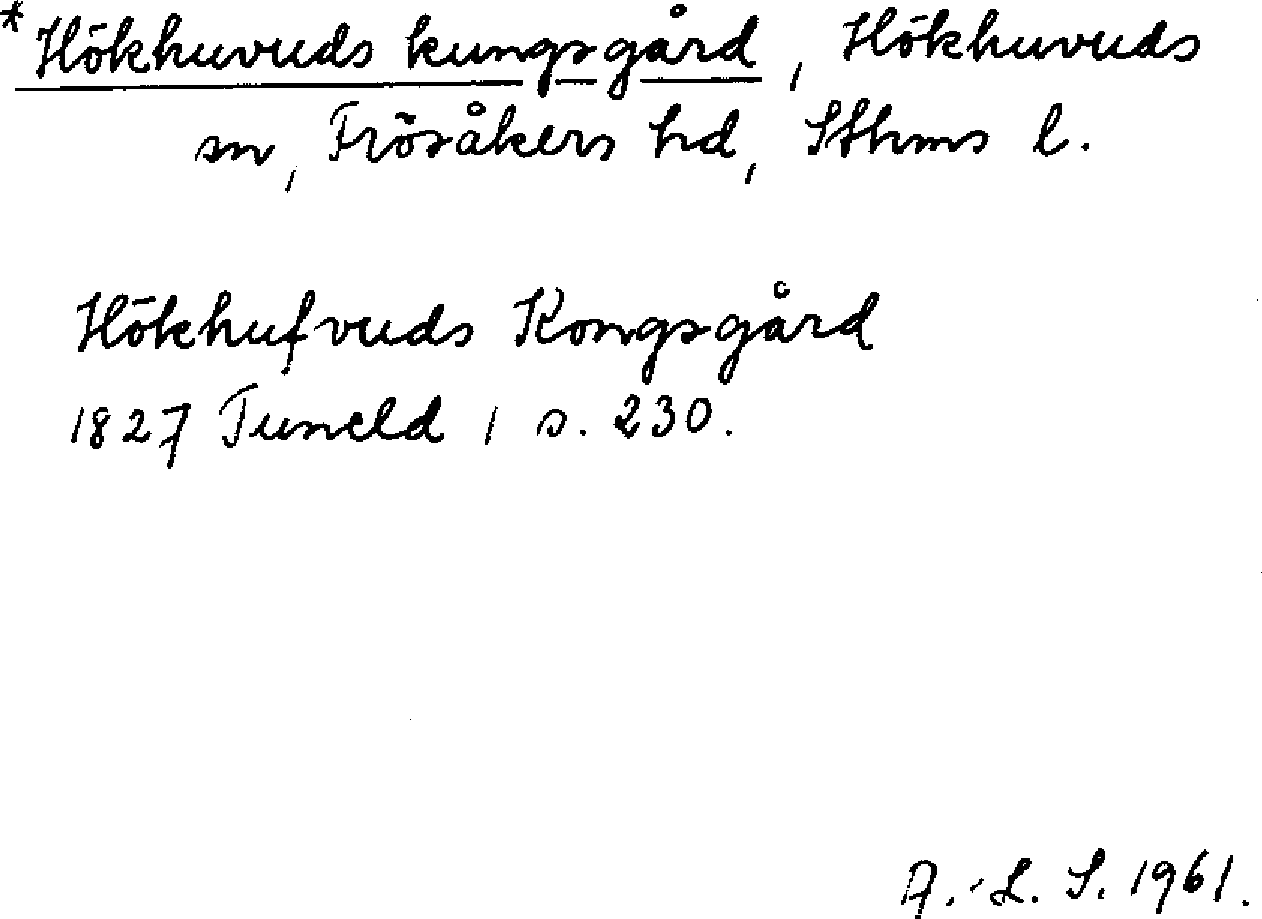 *Hökhuvuds kungsgård, Hökhuvuds
sn, Frösåkers hd, Sthms l.
Hökhufvuds Kongsgård
1827 Tuneld 1 s. 230.
A.-L. S. 1961.